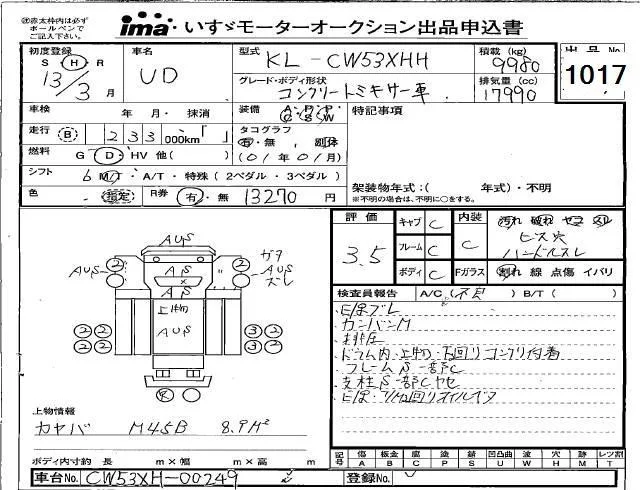 ㊟赤太枠内は必ず
ボールペンで
ご記入下さい。
ima いすゞモーターオークション出品申込書
初度登録 S H R 13/3月
車名 UD
型式 KL-CW53XHH
積載 (kg) 9980
出品No 1017
グレード・ボディ形状 コンクリートミキサー車
排気量 (cc) 17990
車検 年 月・ 抹消
装備 A・P・P・C・S・W
特記事項
走行 B 233 000km「 」
タコグラフ 有・無
燃料 G D・HV 他( )
(01年01月)
シフト 6 M/T・A/T・特殊(2ペダル・3ペダル)
架装物年式:( 年式)・不明
※不明の場合は、不明に○をする。
色 指定 R券 有・無 13270 円
評価 3.5
キャブ C
フレーム C
ボディ C
内装 C
汚れ 破れ ヤニ スレ
ビス穴
ハンドルスレ
Fガラス 割れ 線 点傷 イバリ
検査員報告 A/C( ) B/T( )
カンバンM
排圧
ドラム内・上物・下回りコンクリ付着
フレームS一部C
支柱S一部Cヤセ
AUS
AUS
AS
AS
上物
AUS
ガラ
AUS
ズレ
2 2
2 2 3 2
2 2 3 2
上物情報
カヤバ MR45B 8.9M²
ボディ内寸約 長 m×幅 m×高 m
記号 傷A 板金B 腐C 塗P 錆S 凹凸曲U 波W 穴H 跡M レンズ割T
車台No. CW53XH-00249
登録No.